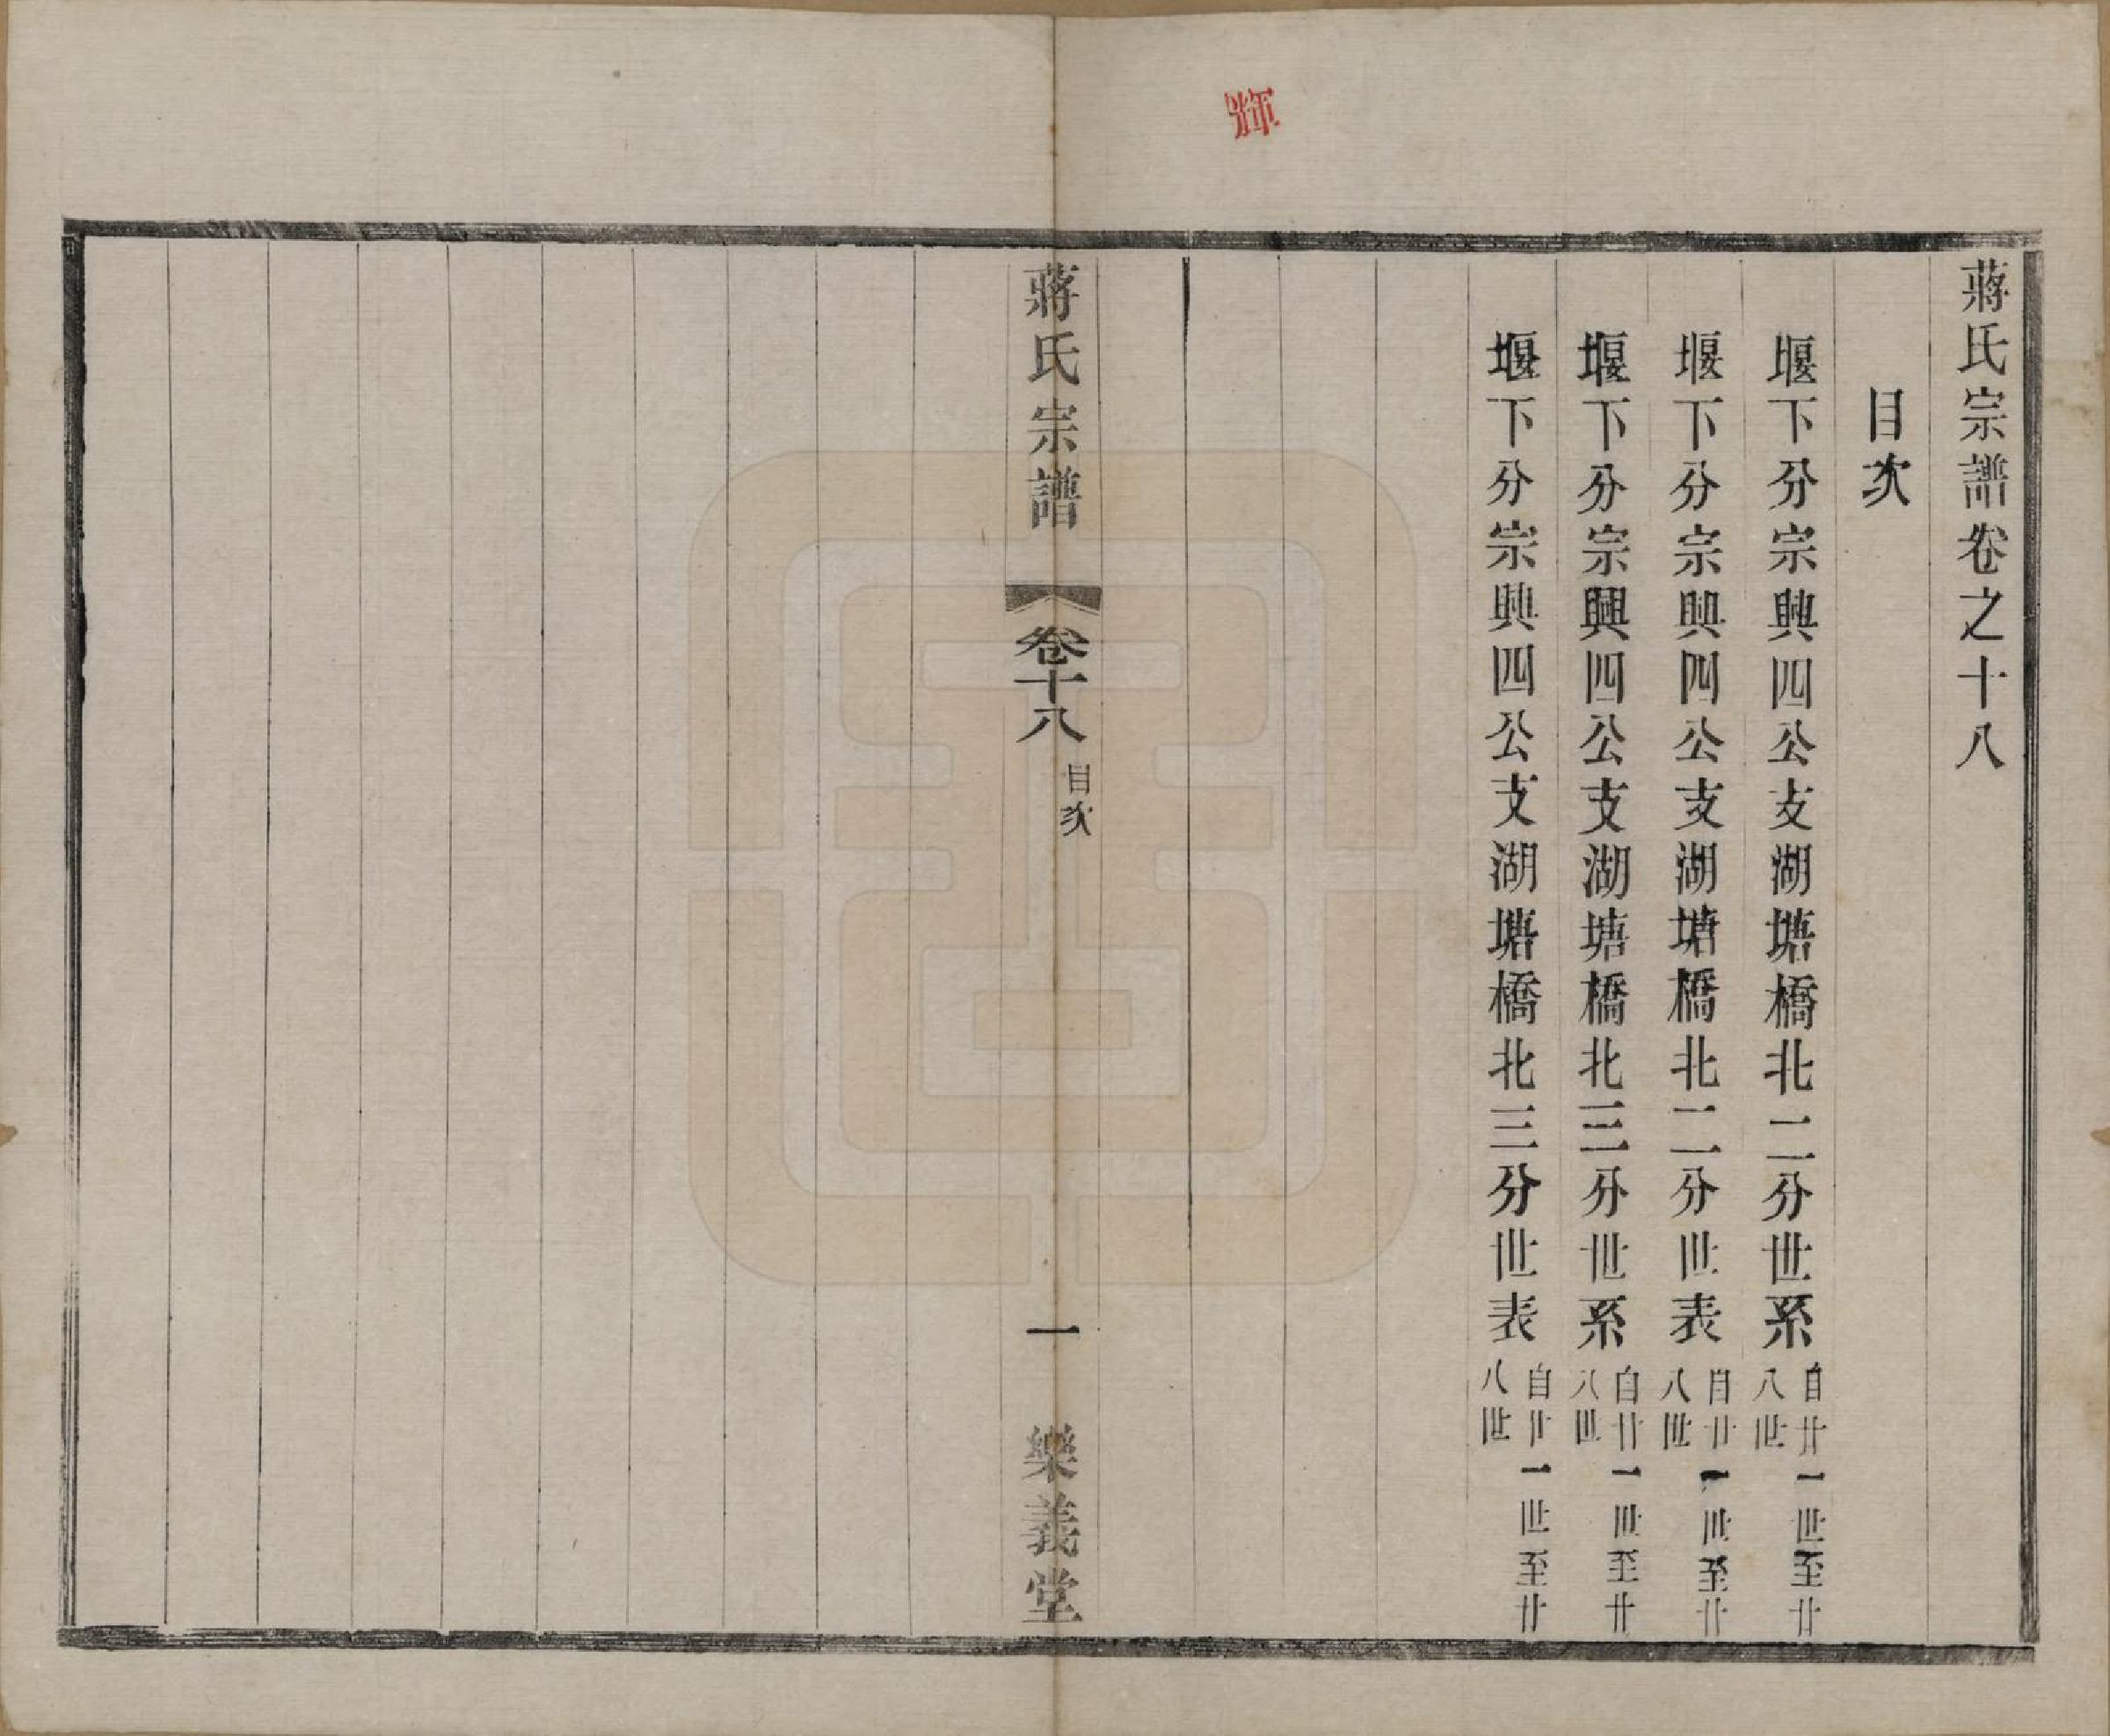 蔣氏宗譜卷之十八
目次
堰下分宗興四公支湖塘橋北二分世系自廿一世至廿八世
堰下分宗興四公支湖塘橋北二分世表自廿一世至廿八世
堰下分宗興四公支湖塘橋北三分世系自廿一世至廿八世
堰下分宗興四公支湖塘橋北三分世表自廿一世至廿八世
蔣氏宗譜
卷十八
目次
一
樂義堂